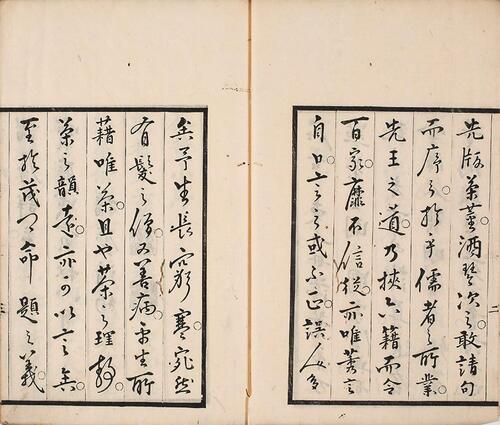 先版茶董酒顛次之敢請句
而序之於乎儒者之所業
先王之道乃挾六籍而令
百家靡不信從亦唯莠言
自口言之或不正誤人多
矣予生長窮寒宛然
有髮之僧又善病平生所
藉唯茶且也茶之理静
茶之韻遠亦可以言之矣
至於茂卿命題之義
二
三